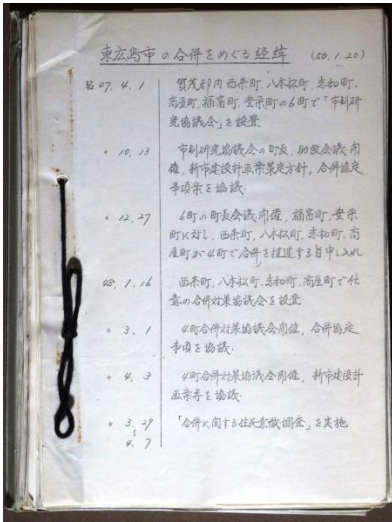 東広島市の合併をめぐる経緯 (50.1.20)
昭47.4.1 賀茂郡内西条町、八本松町、志和町、
高屋町、福富町、豊栄町の6町で「市制研
究協議会」を設置
〃 10.13 市制研究協議会の町長、助役会議開
催、新市建設計画策定方針、合併協定
事項案を協議
〃 12.27 6町の町長会議開催、福富町、豊栄
町に対し、西条町、八本松町、志和町、高
屋町が4町で合併を推進する旨申し入れ
48.1.16 西条町、八本松町、志和町、高屋町で任
意の合併対策協議会を設置
〃 3.1 4町合併対策協議会開催、合併協定
事項を協議.
〃 4.3 4町合併対策協議会開催、新市建設計
画案等を協議.
〃 3.29 「合併に関する住民意識調査」を実施
〜
4.7